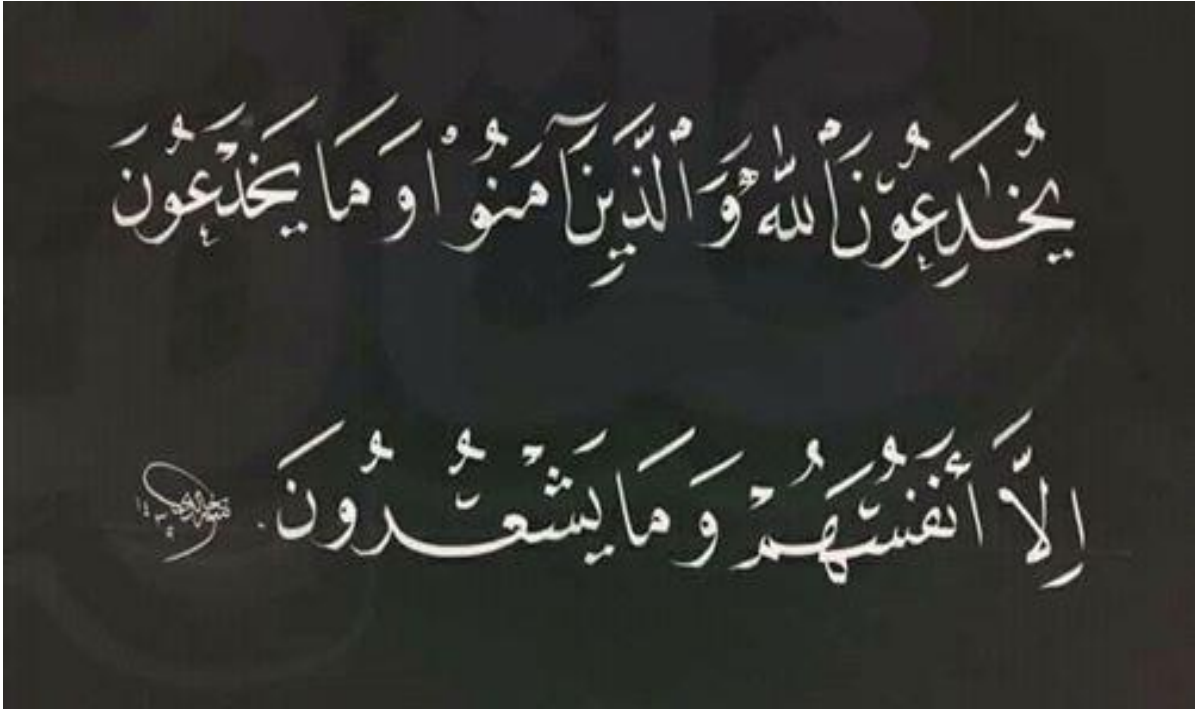 يُخَٰدِعُونَ ٱللَّهَ وَٱلَّذِينَ آمَنُوا۟ وَمَا يَخْدَعُونَ
إِلَّا أَنفُسَهُمْ وَمَا يَشْعُرُونَ.